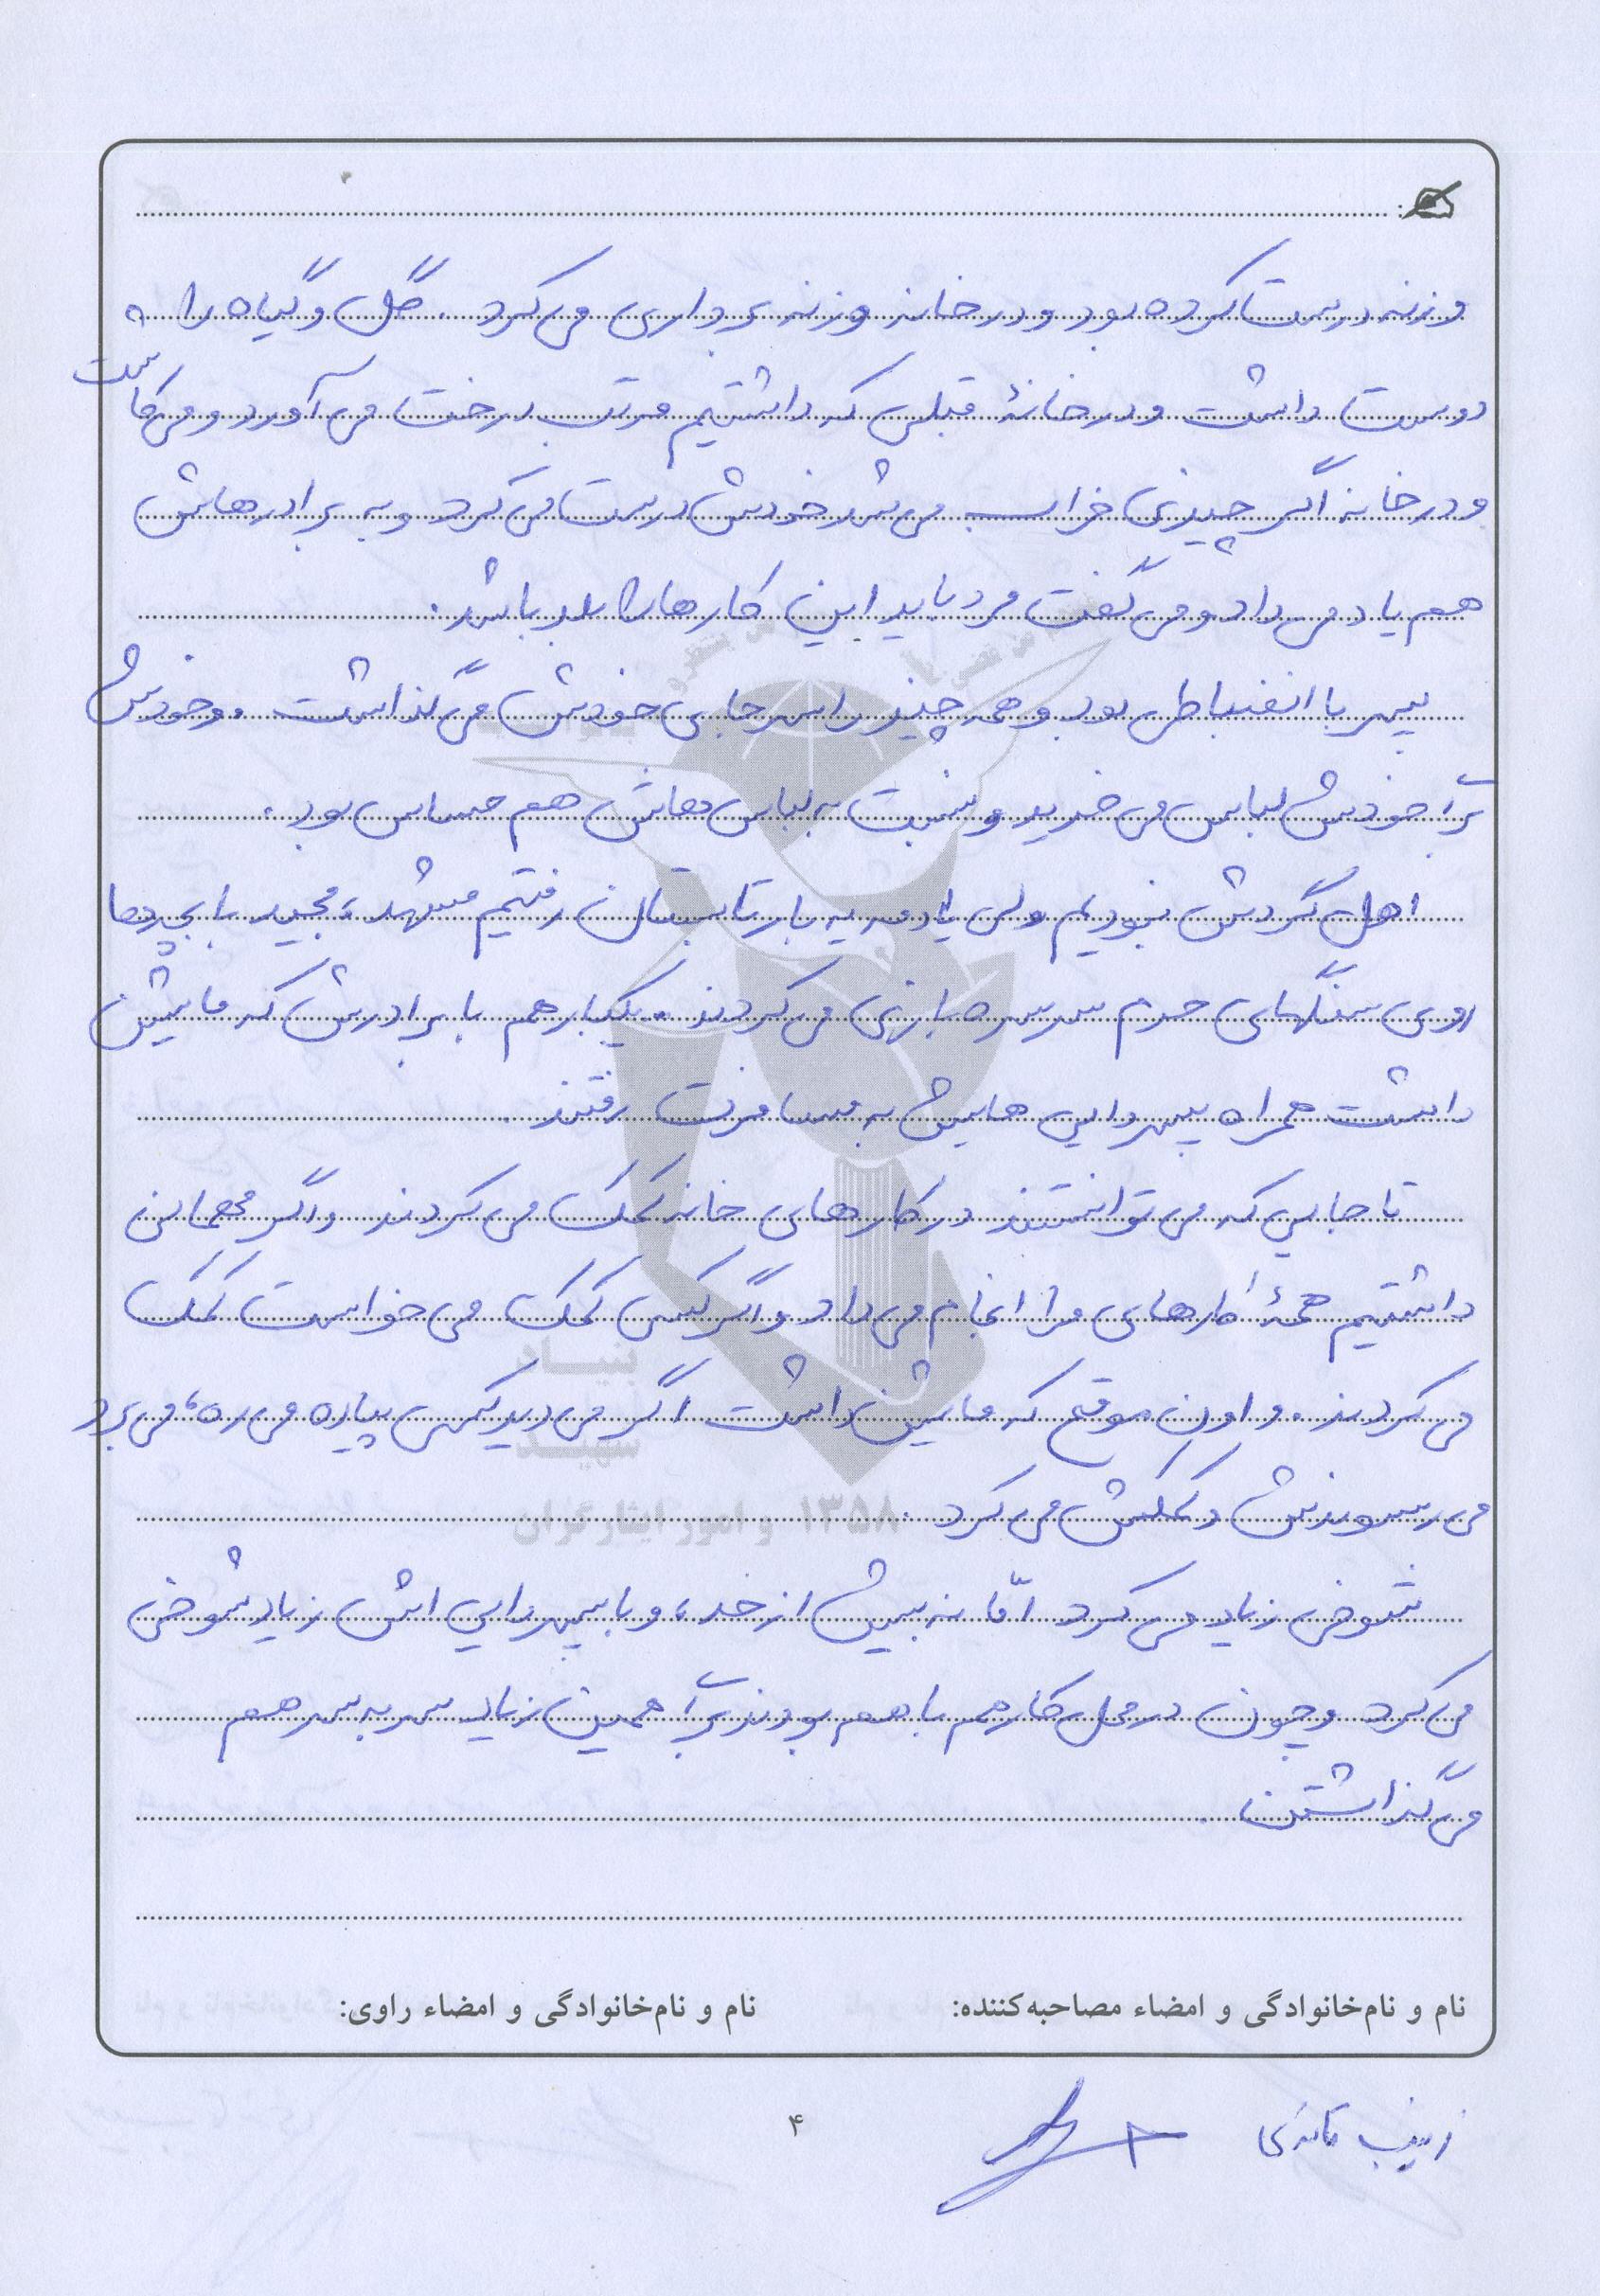 وزنه درست کرده بود و در خانه وزنه برداری می کرد . گل و گیاه را
دوست داشت و در خانهٔ قبلی که داشتیم مرتب درخت می آورد و می کاشت
و در خانه اگر چیزی خراب می شد خودش درست می کرد و به برادرهاش
هم یاد می داد و می گفت مرد باید این کارها را بلد باشد .
پسر با انضباطی بود و همه چیز را سر جای خودش می گذاشت . و خودش
برا خودش لباس می خرید و نسبت به لباس هاش هم حساس بود .
اهل گردش نبودیم ولی یادمه یه بار تابستان رفتیم مشهد ، مجید با بچه ها
روی سنگهای حرم سرسره بازی می کردند . یکبار هم با برادرش که ماشین
داشت همراه پسردایی هایش به مسافرت رفتند .
تا جایی که می توانستند در کارهای خانه کمک می کردند و اگر مهمانی
داشتیم همهٔ کارهای مرا انجام می داد و اگر کسی کمک می خواست کمک
می کردند . و اون موقع که ماشین داشت اگر می دید کسی پیاده می ره ، می برد
می رسوندش و کمکش می کرد .
شوخی زیاد می کرد امّا نه بیش از حد ، و با پسردایی اش زیاد شوخی
می کرد و چون در محل کار هم با هم بودند برا همین زیاد سر به سر هم
می گذاشتن .
نام و نام‌خانوادگی و امضاء مصاحبه‌کننده: نام و نام‌خانوادگی و امضاء راوی:
زینب
۴
بنیاد
شهید
۱۳۵۸ و امور ایثارگران